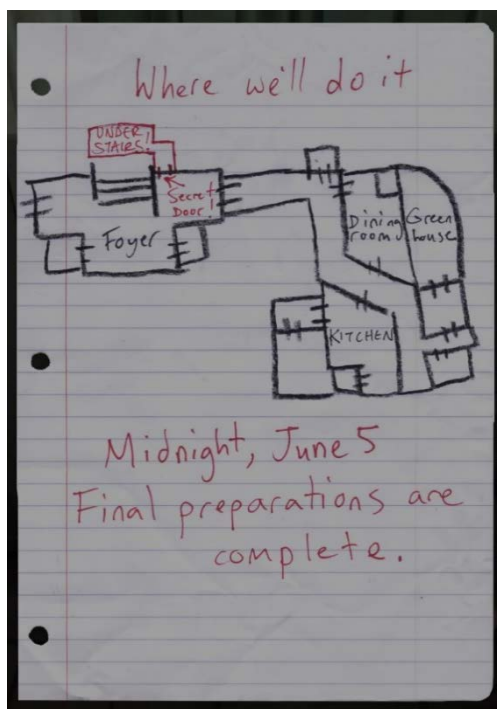 Where we'll do it
UNDER
STAIRS!
Secret
Door!
Foyer
Dining
room
Green
house
KITCHEN
Midnight, June 5
Final preparations are
complete.